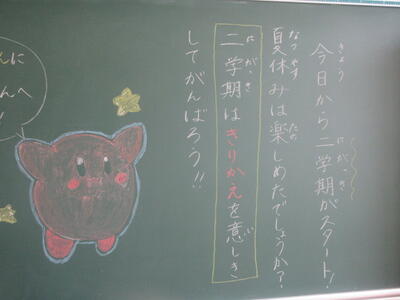 今日から二学期がスタート!
夏休みは楽しめたでしょうか?
二学期はきりかえを意しき
してがんばろう!!
きょう
にがっき
なつやす
たの
にがっき
い
んに
んへ
!